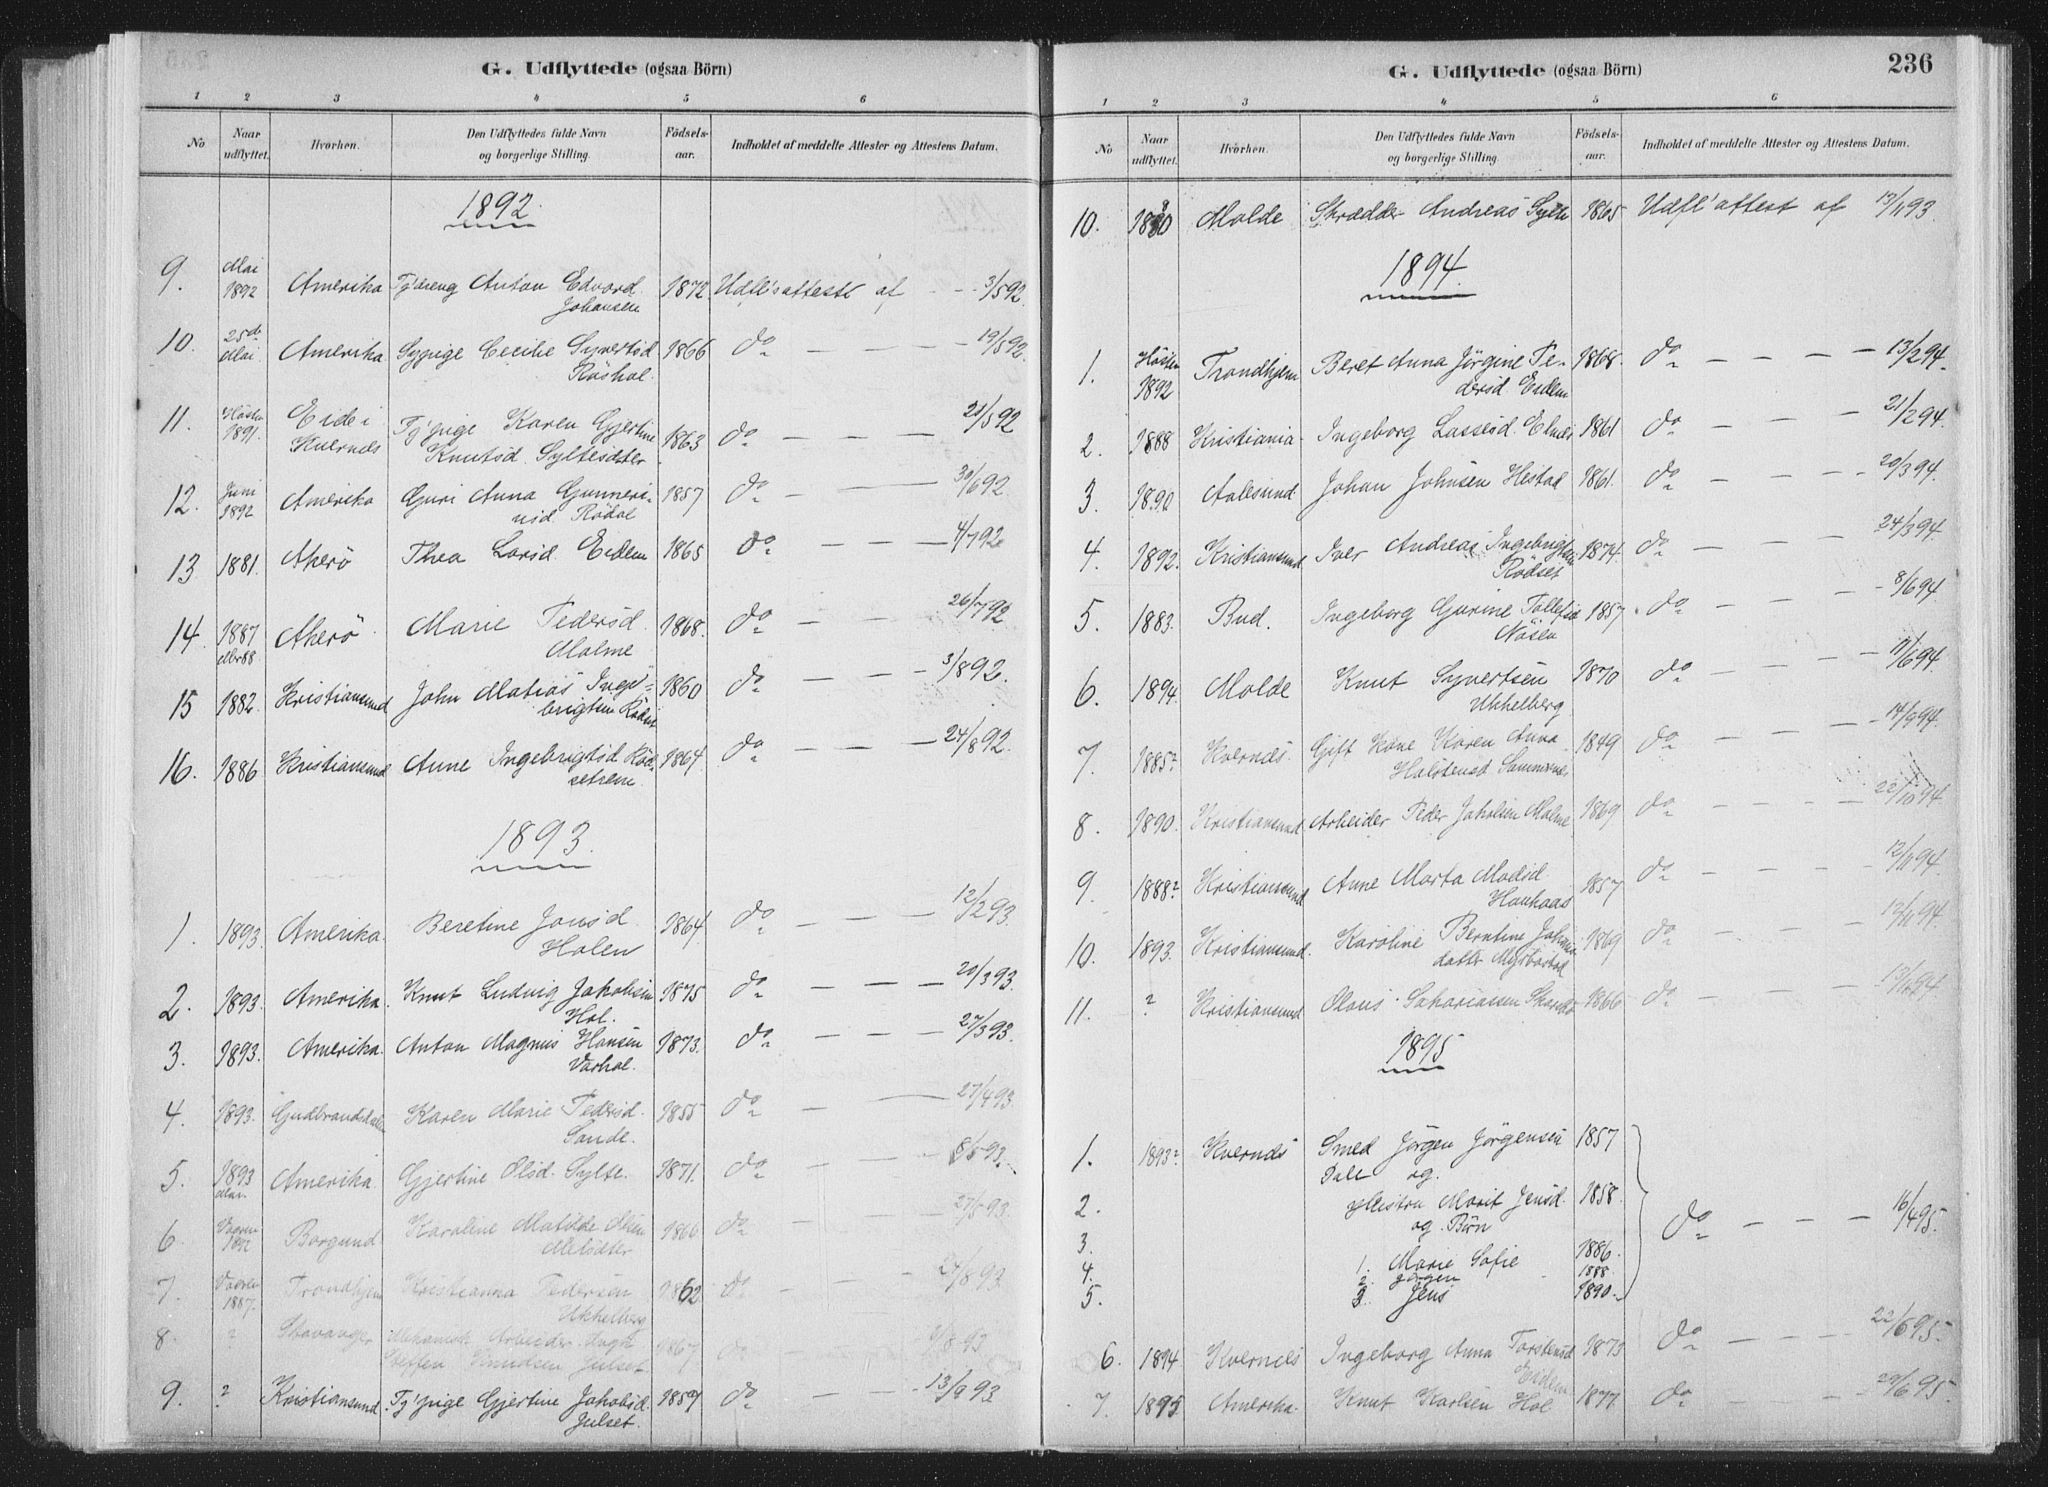 G. Udflyttede (ogsaa Börn)
1 2 3 4 5 6
No Naar udflyttet. Hvorhen. Den Udflyttedes fulde Navn og borgerlige Stilling. Födsels-aar. Indholdet af meddelte Attester og Attestens Datum.
1892.
9. Mai 1892 Amerika Tj'dreng Anton Edvard 1872 Udfl'sattest af - - 3/5 92.
Johansen
10. 25de Mai Amerika Sypige Cecilie Syvertsd 1866 do — — — 19/5 92.
Röshol.
11. Hösten 1891. Eide i Tj'pige Karen Gjertine 1863 do — — — 21/5 92
Kvernes Knutsd. Syltesdter
12. Juni 1892 Amerika Guri Anna Gunneri- 1857 do — — 30/6 92
usd. Rödal
13 1881. Akerö Thea Larsd. Eidem 1865 do — — — 4/7 92
14. 1887 eller 88 Akerö Marie Pedersd. 1868. do — — — 26/7 92
Malme
15 1882. Kristiansund John Matias Inge- 1860 do — — — 3/8 92.
brigtsen Rödset
16. 1886 Kristiansund Anne Ingebrigtsd Röd- 1864. do — — — 24/8 92.
setrem
1893.
1. 1893. Amerika. Beretine Jonsd 1864. do — — — 12/2 93.
Holen
2. 1893. Amerika. Knut Ludvig Jakobsen 1875 do — — — 20/3 93.
Hol.
3. 1893. Amerika. Anton Magnus Hansen 1873. do — — — 27/3 93.
Varhol.
4. 1893. Gudbrandsdalen Karen Marie Pedersd. 1855 do — — 27/4 93.
Sande.
5. 1893 Mai. Amerika. Gjertine Olsd. Sylte. 1871. do — — — 8/5 93.
6 Vaaren 1892 Borgund Karoline Matilde Olsen 1866 do — — — 27/5 93.
7. Vaaren 1887. Trondhjem Kristianna Pedersen 1862 do — — — 27/8 93
Ukkelberg
8. ? Stavanger Mekanisk Arbeider 1867 do — — /8 93
Steffen Knudsen Julset
9. ? Kristiansund Tj'pige Gjertine Jakobsd. 1859 do — — — 13/9 93
Julset.
G. Udflyttede (ogsaa Börn) 236
1 2 3 4 5 6
No Naar udflyttet. Hvorhen. Den Udflyttedes fulde Navn og borgerlige Stilling. Födsels-aar. Indholdet af meddelte Attester og Attestens Datum.
10. 1880 Molde Skrædder Andreas Sylte 1865 Udfl'attest af 13/11 93.
1894.
1. Hösten 1892 Trondhjem Beret Anna Jörgine Pe- 1868. do — — — — 13/2 94.
dersd Eidem
2. 1888 Kristiania Ingeborg Lassesd. Elnes 1861 do — — — 21/2 94.
3. 1890 Aalesund. Johan Johnsen Hestad 1861. do — — — — 20/3 94.
4. 1892. Kristiansund Iver Andreas Ingebrigtsen 1874. do — — — 24/3 94.
Rödset
5. 1883. Bud. Ingeborg Gurine Tollefsd 1857 do — — — 8/6 94
Näsen
6. 1894. Molde Knut Syvertsen 1870 do — — — 11/6 94
Ukkelberg
7. 1885? Kvernes. Gift Kone Karen Anna 1849 do — — — 14/9 94.
Halstensd
8. 1890. Kristiansund Arbeider Peder Jakobsen Malme 1869 do — — — — 22/10 94
9. 1888? Kristiansund Anne Marta Madsd. 1857 do — — — 12/11 94
Haukaas
10. 1893. Kristiansund. Karoline Berntine Johans- 1869 do — — — 13/11 94.
datter Myrbostad
11. ? Kristiansund Olaus Sakariassen 1866 do — — — — 94
1895
1. 1893? Kvernes Smed Jörgen Jörgensen 1857
Dale og.
2. Hustru Marit Jensd. 1858.
og Börn do — — — 16/4 95.
3. 1. Marie Sofie 1886.
4. 2. Jörgen 1888.
5. 3. Jens 1890.
6. 1894. Kvernes Ingeborg Anna Torstensd 1873 do — — — 22/6 95.
Eidem
7. 1895 Amerika. Knut Karlsen Hol 1877. do — — 29/6 95.